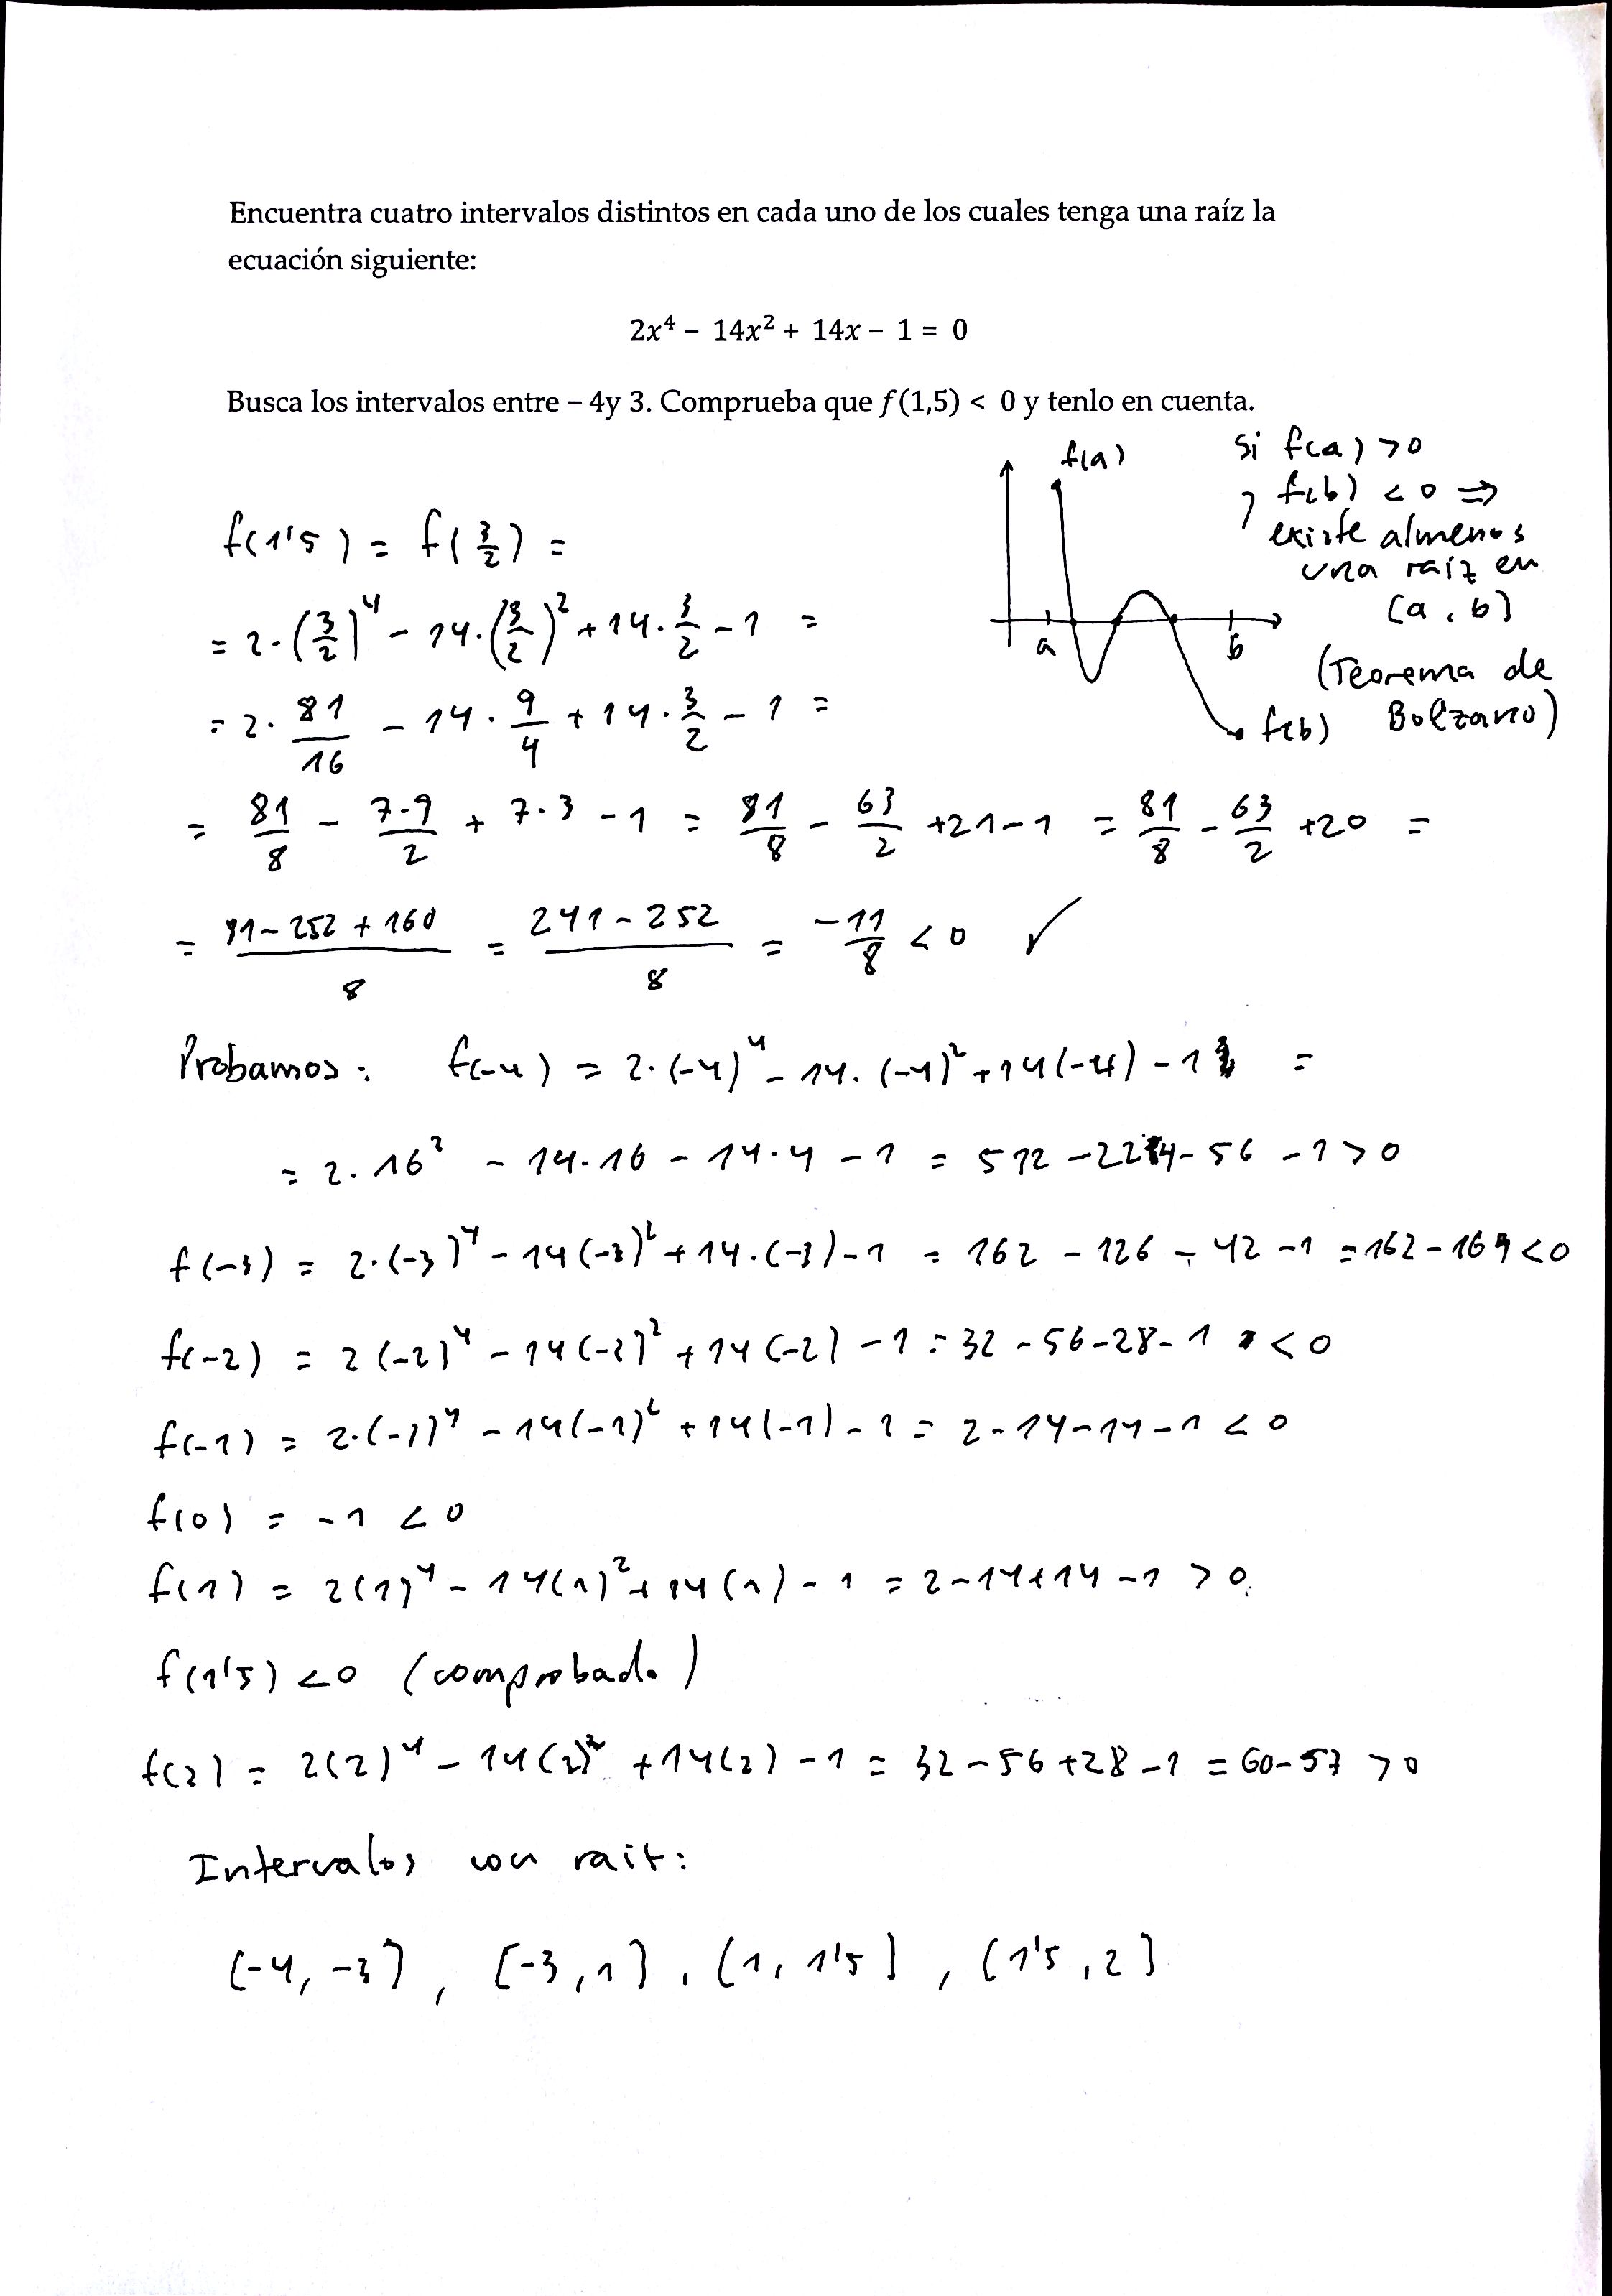 Encuentra cuatro intervalos distintos en cada uno de los cuales tenga una raíz la
ecuación siguiente:
2x⁴ − 14x² + 14x − 1 = 0
Busca los intervalos entre − 4y 3. Comprueba que f(1,5) < 0 y tenlo en cuenta.
f(a)
a
b
f(b)
Si f(a) > 0
y f(b) < 0 ⇒
existe almenos
una raíz en
(a, b)
(Teorema de
Bolzano)
f(1'5) = f(3/2) =
= 2·(3/2)⁴ − 14·(3/2)² + 14·3/2 − 1 =
= 2·81/16 − 14·9/4 + 14·3/2 − 1 =
= 81/8 − 7·9/2 + 7·3 − 1 = 81/8 − 63/2 + 21 − 1 = 81/8 − 63/2 + 20 =
= (81 − 252 + 160)/8 = (241 − 252)/8 = −11/8 < 0 ✓
Probamos: f(-4) = 2·(-4)⁴ − 14·(-4)² + 14(-4) − 1 =
= 2·16² − 14·16 − 14·4 − 1 = 512 − 224 − 56 − 1 > 0
f(-3) = 2·(-3)⁴ − 14(-3)² + 14·(-3) − 1 = 162 − 126 − 42 − 1 = 162 − 169 < 0
f(-2) = 2(-2)⁴ − 14(-2)² + 14(-2) − 1 = 32 − 56 − 28 − 1 < 0
f(-1) = 2·(-1)⁴ − 14(-1)² + 14(-1) − 1 = 2 − 14 − 14 − 1 < 0
f(0) = −1 < 0
f(1) = 2(1)⁴ − 14(1)² + 14(1) − 1 = 2 − 14 + 14 − 1 > 0
f(1'5) < 0 (comprobado)
f(2) = 2(2)⁴ − 14(2)² + 14(2) − 1 = 32 − 56 + 28 − 1 = 60 − 57 > 0
Intervalos con raiz:
(-4, -3), [-3, 1], (1, 1'5], (1'5, 2]